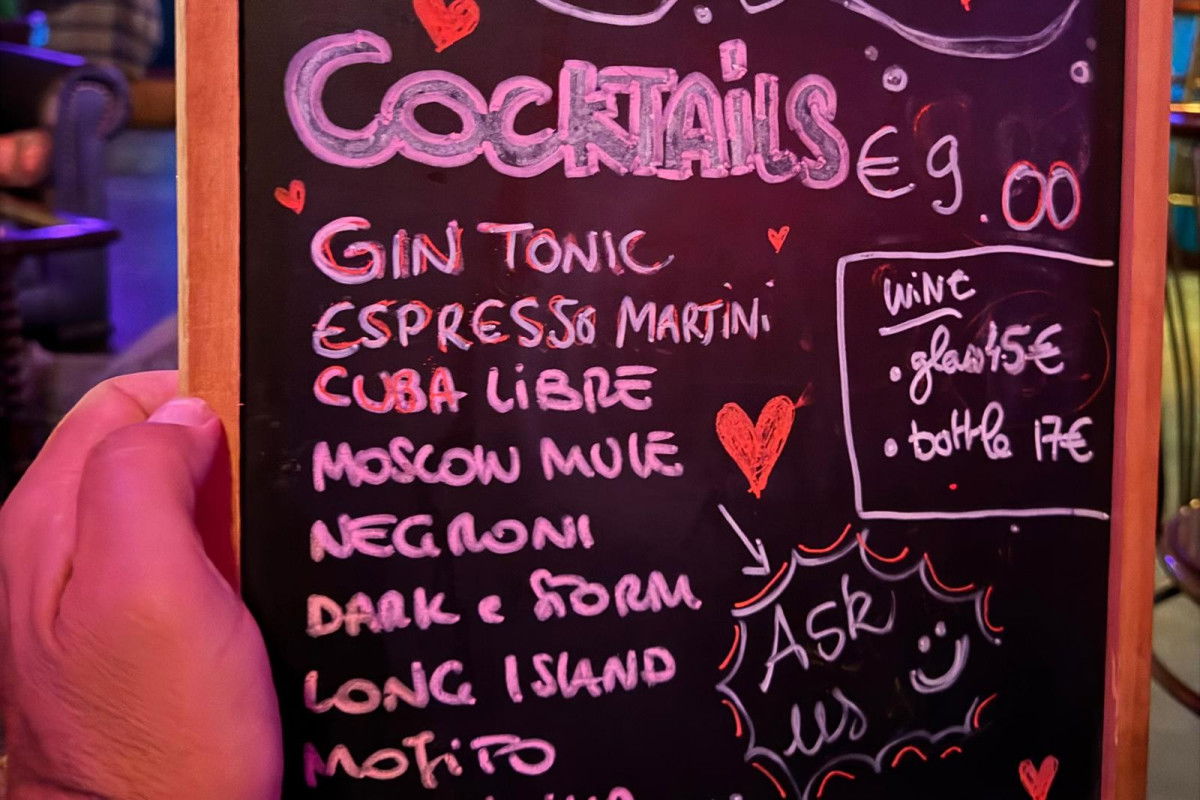 COCKTAiLS €9.00
GIN TONIC
ESPRESSO MARTiNi
CUBA LiBRE
MOSCOW MULE
NEGRONI
DARK e STORM
LONG ISLAND
MOJiTO
WiNE
• glass 4.5€
• bottle 17€
ASk
us